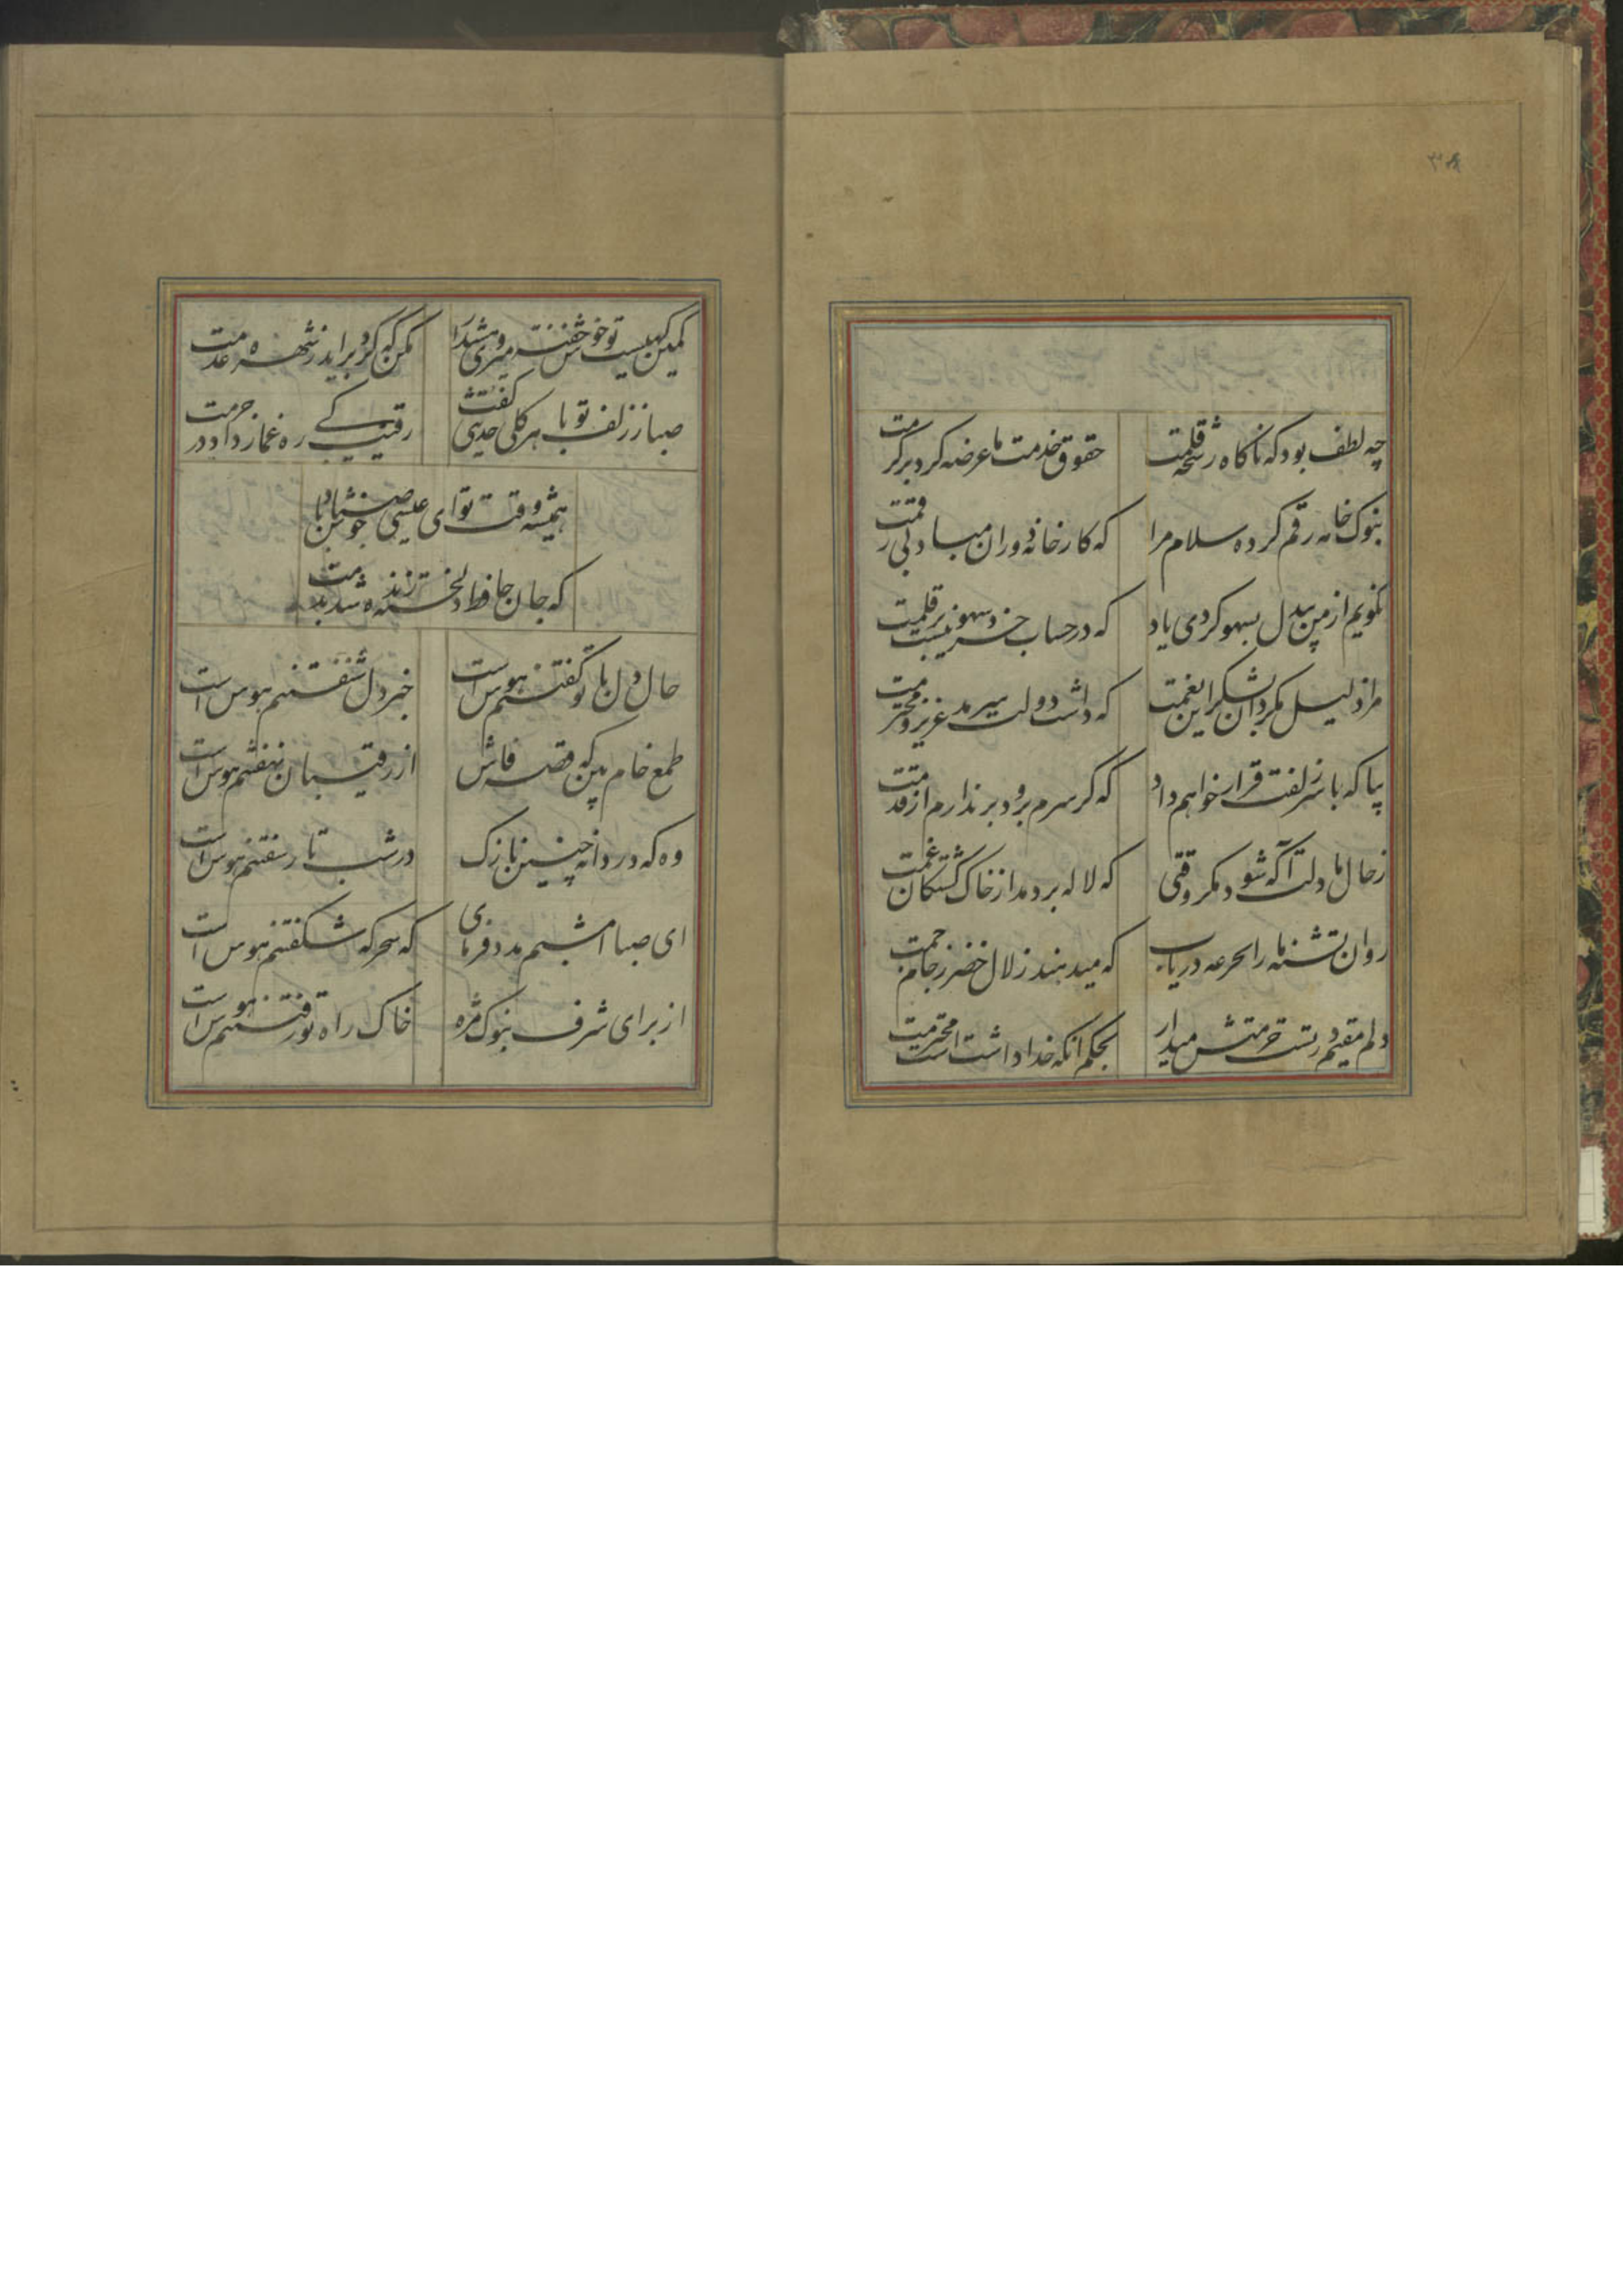 ۳۸
چه لطف بود که ناگاه رشحه قلمت حقوق خدمت ما عرضه کرد بر کرمت
بنوک خامه رقم کرده سلام مرا که کارخانه دوران مباد بی رقمت
نگویم از من بیدل بسهو کردی یاد که در حساب خرد سهو نیست بر قلمت
مرا ذلیل مگردان بشکر این نعمت که داشت دولت سرمد عزیز و محترمت
بیا که با سر زلفت قرار خواهم داد که گر سرم برود بر ندارم از قدمت
ز حال ما دلت آگه شود مگر وقتی که لاله بر دمد از خاک کشتگان غمت
روان تشنه ما را بجرعه دریاب که میدهند زلال خضر ز جام جمت
دلم مقیم در تست حرمتش میدار بحکم آنکه خدا داشتست محترمت
کمین گهیست تو خوش خفته میروی هشدار مکن که گرد بر آید ز شهره عدمت
صبا ز زلف تو با هر گلی حدیثی گفت رقیب کی ره غماز داد در حرمت
همیشه وقت تو ای عیسی صبا خوش باد
که جان حافظ دلخسته زنده شد بدمت
حال دل با تو گفتنم هوس است خبر دل شنفتنم هوس است
طمع خام بین که قصه فاش از رقیبان نهفتنم هوس است
وه که دردانه چنین نازک در شب تار سفتنم هوس است
ای صبا امشبم مدد فرمای که سحرگه شکفتنم هوس است
از برای شرف بنوک مژه خاک راه تو رفتنم هوس است